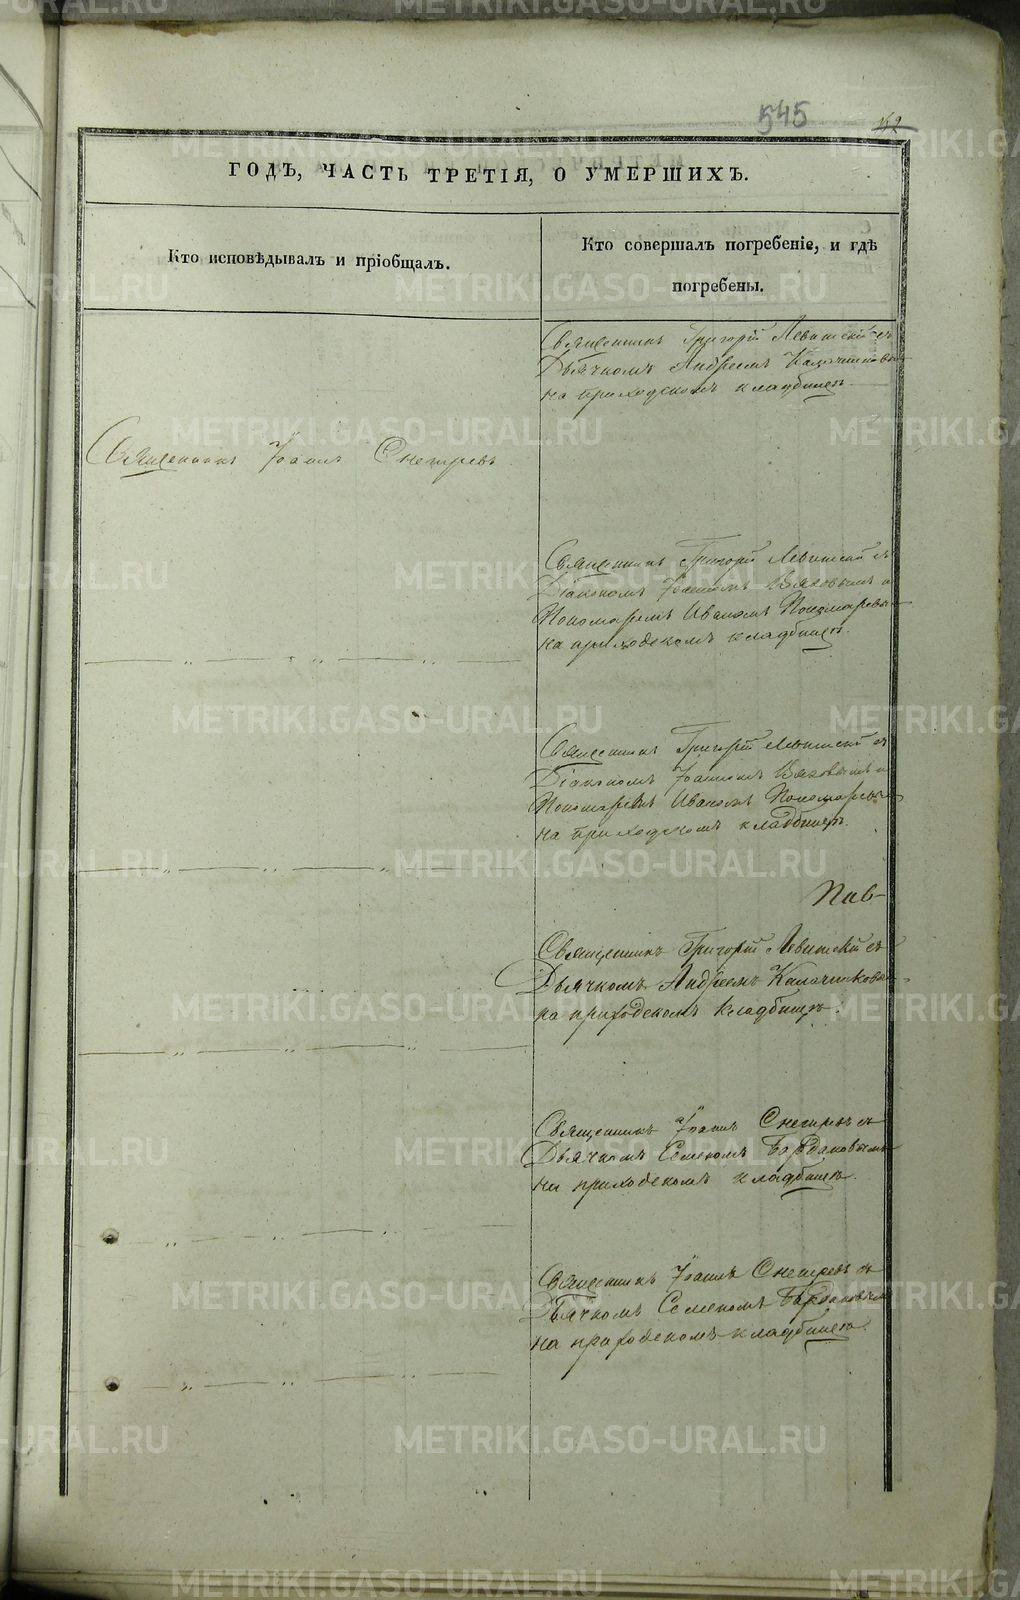 545
ГОДЪ, ЧАСТЬ ТРЕТІЯ, О УМЕРШИХЪ.
Кто исповѣдывалъ и пріобщалъ.
Кто совершалъ погребеніе, и гдѣ
погребены.
Священникъ Григорій Левитскій съ
Дьячкомъ Андреемъ
на приходскомъ кладбищѣ.
Священникъ Іоаннъ Снегирев
Священникъ Григорій Левитскій съ
Діакономъ Іоанномъ Вяховымъ и
Пономаремъ Иваномъ Пономаревы
на приходскомъ кладбищѣ.
Священникъ Григорій Левитскій съ
Діакономъ Іоанномъ Вяховымъ и
Пономаремъ Иваномъ Пономаревы
на приходскомъ кладбищѣ.
Священникъ Григорій Левитскій съ
Дьячкомъ Андреемъ
на приходскомъ кладбищѣ.
Священникъ Іоаннъ Снегиревъ съ
Дьячкомъ Семеномъ
на приходскомъ кладбищѣ.
Священникъ Іоаннъ Снегиревъ съ
Дьячкомъ Семеномъ
на приходскомъ кладбищѣ.
METRIKI.GASO-URAL.RU